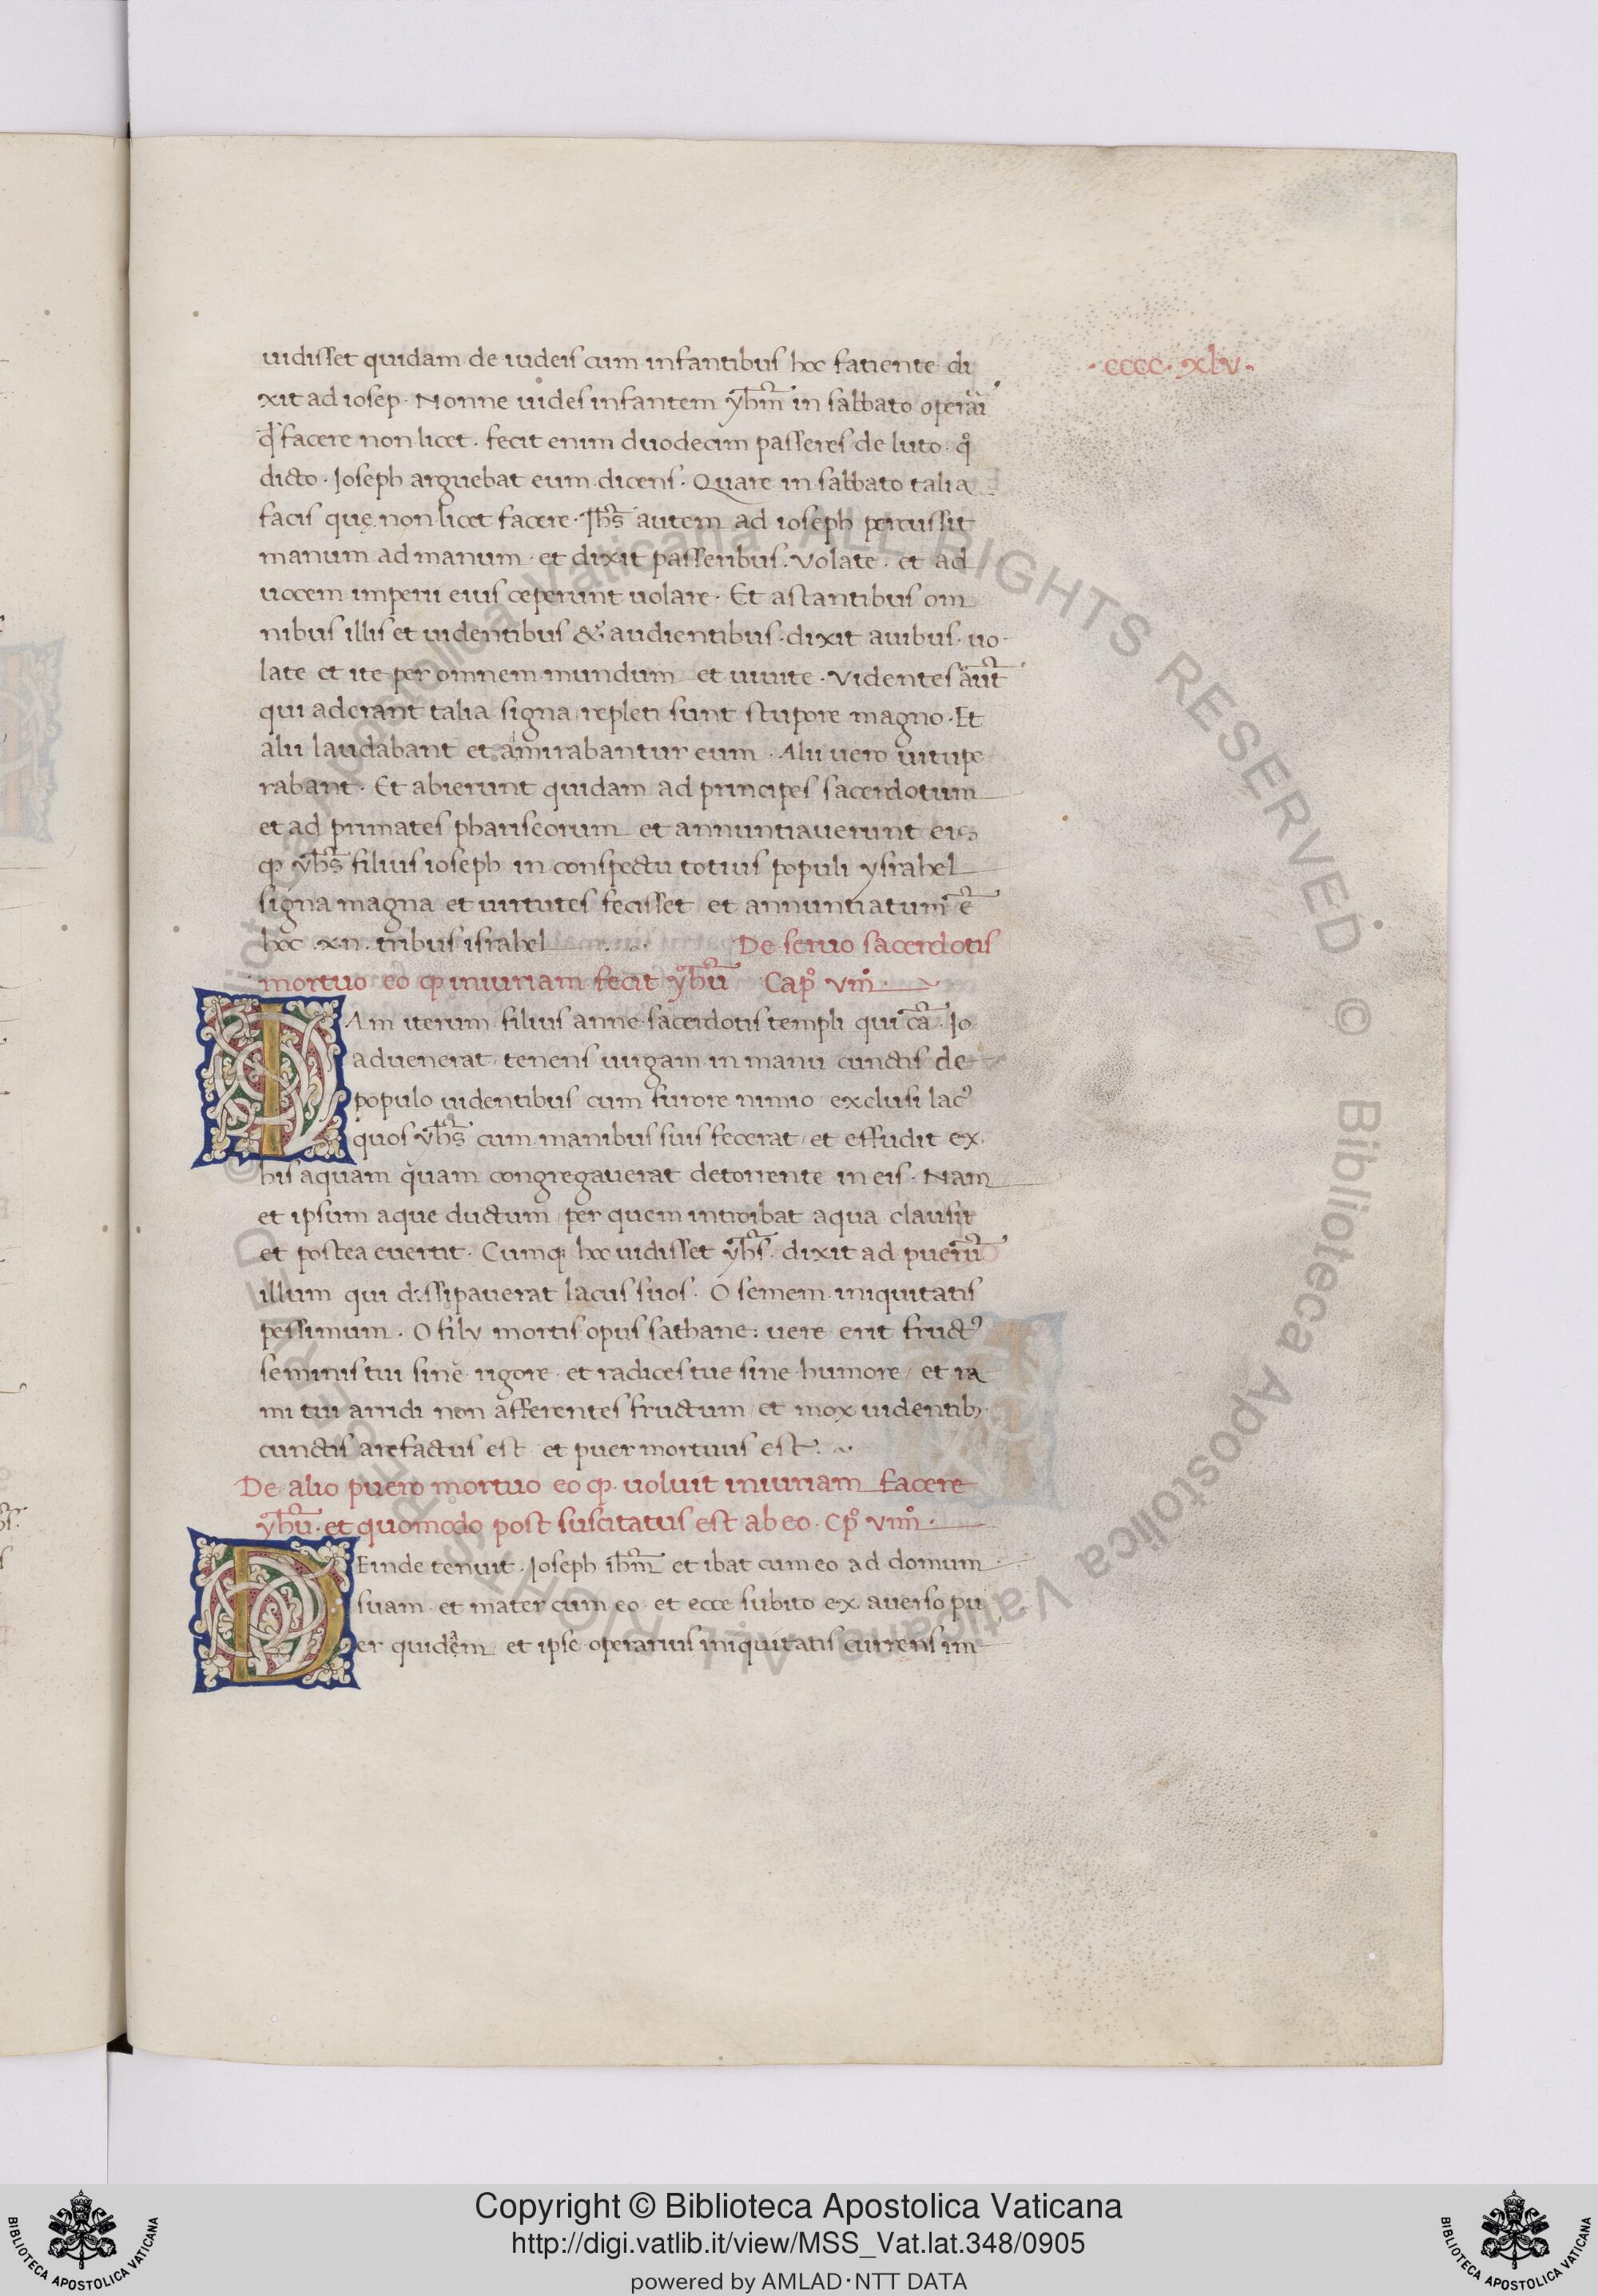 uidisset quidam de iudeis cum infantibus hoc fatiente di
·cccc·xlv·
xit ad iosep. Nonne uides infantem yħm̄ in sabbato operari
qd̄ facere non licet. fecit enim duodecim passeres de luto. qͦ
dicto. Joseph arguebat eum dicens. Quare in sabbato talia
facis quę non licet facere. Jħs̄ autem ad ioseph percussit
manum ad manum. et dixit passeribus. Volate. et ad
uocem imperii eius ceperunt uolare. Et astantibus om
nibus illis et uidentibus & audientibus. dixit auibus. uo
late et ite per omnem mundum et uiuite. Videntes aūt
qui aderant talia signa repleti sunt stupore magno. Et
alii laudabant et admirabantur eum. Alii uero uitupe
rabant. Et abierunt quidam ad principes sacerdotum
et ad primates phariseorum et annuntiauerunt eis
ꝙ yħs̄ filius ioseph in conspectu totius populi ysrahel
signa magna et uirtutes fecisset et annuntiatum ē
hoc .xii. tribus israhel De seruo sacerdotis
mortuo eo ꝙ iniuriam fecit yħū Capͦ viiiͦ.
IAm iterum filius anne sacerdotis templi qui cā Jo
aduenerat tenens uirgam in manu cunctis de
populo uidentibus cum furore nimio exclusi lacꝰ
quos yħs̄ cum manibus suis fecerat et effudit ex
his aquam quam congregauerat detorrente in eis. Nam
et ipsum aque ductum per quem introibat aqua clausit
et postea euertit. Cumq; hoc uidisset yħs̄. dixit ad puerū
illum qui dissipauerat lacus suos. O semem iniquitatis
pessimum. O filv mortis opus sathane: uere erit fructꝰ
seminis tui sine rigore et radices tue sine humore / et ra
mi tui arridi non afferentes fructum / et mox uidentib;
cunctis arefactus est et puer mortuus est.
De alio puero mortuo eo ꝙ uoluit iniuriam facere
yħū. et quomodo post suscitatus est ab eo. Cpͦ viiiiͦ.
DEinde tenuit Joseph iħm̄ et ibat cum eo ad domum
suam et mater cum eo. et ecce subito ex auerso pu
er quidem et ipse operarius iniquitatis currens im
© Biblioteca Apostolica Vaticana ALL RIGHTS RESERVED
BIBLIOTECA APOSTOLICA VATICANA
Copyright © Biblioteca Apostolica Vaticana
http://digi.vatlib.it/view/MSS_Vat.lat.348/0905
powered by AMLAD·NTT DATA
BIBLIOTECA APOSTOLICA VATICANA